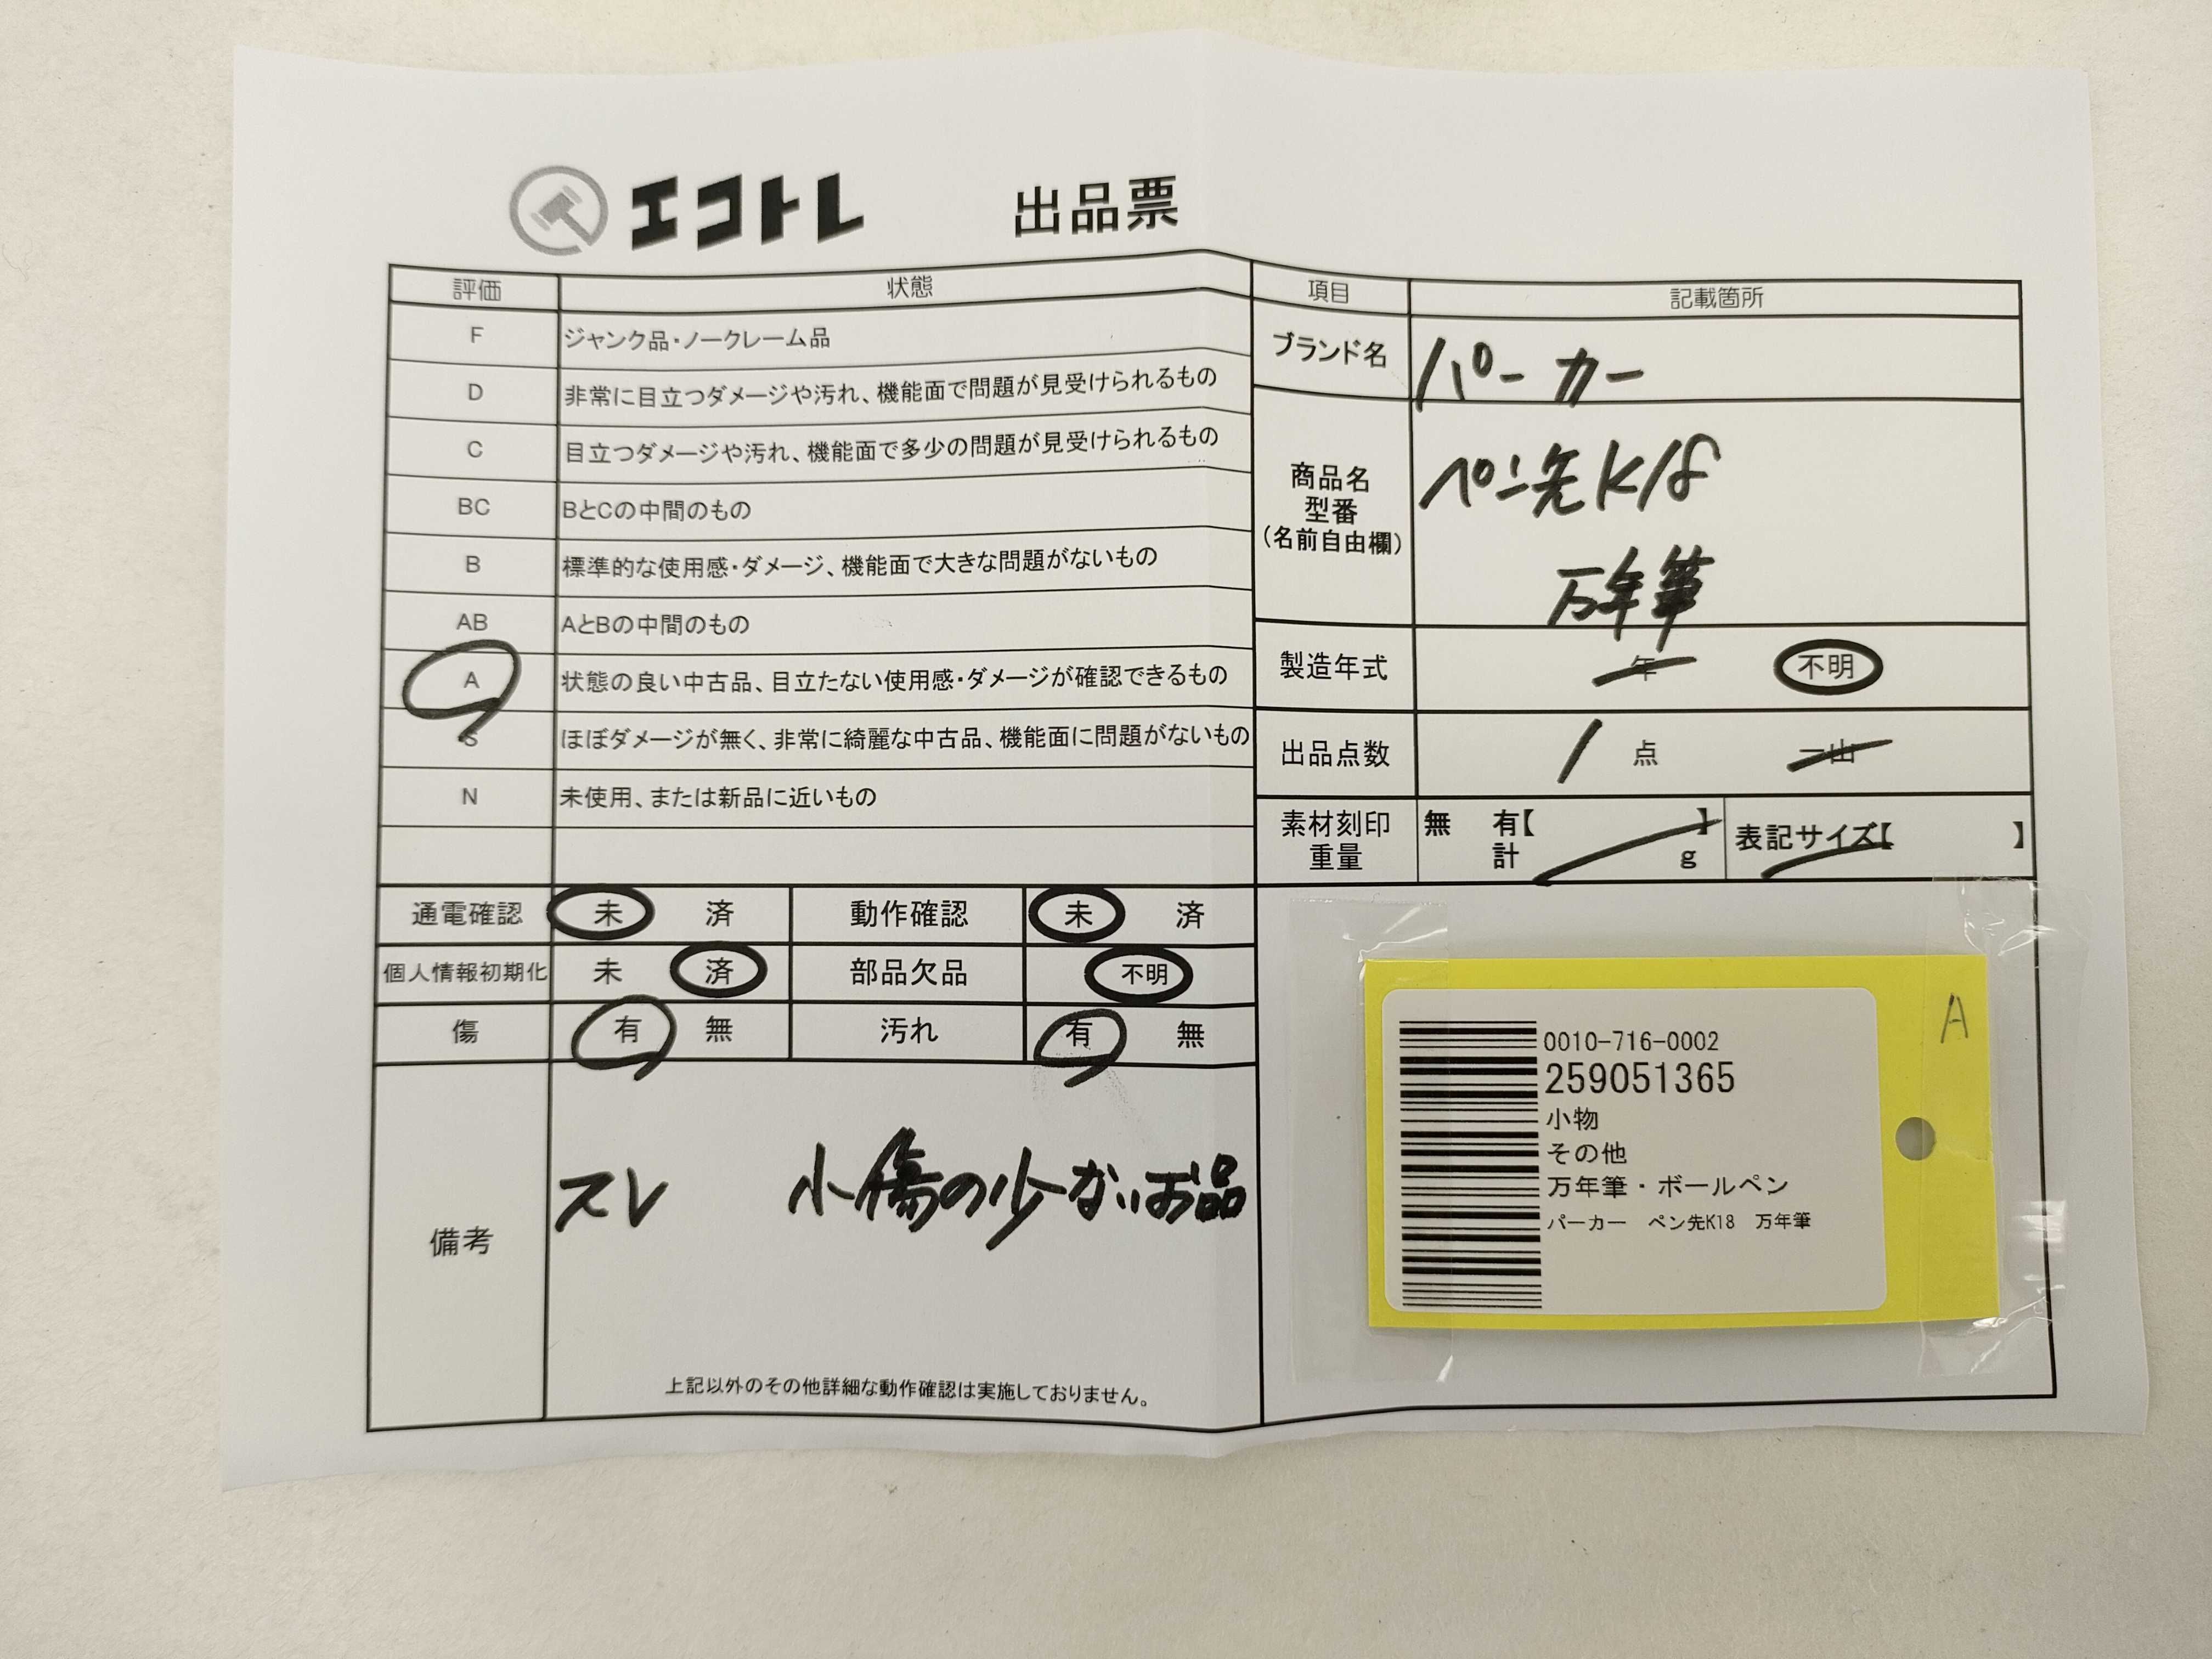 エコトレ 出品票
評価 状態
F ジャンク品・ノークレーム品
D 非常に目立つダメージや汚れ、機能面で問題が見受けられるもの
C 目立つダメージや汚れ、機能面で多少の問題が見受けられるもの
BC BとCの中間のもの
B 標準的な使用感・ダメージ、機能面で大きな問題がないもの
AB AとBの中間のもの
A 状態の良い中古品、目立たない使用感・ダメージが確認できるもの
S ほぼダメージが無く、非常に綺麗な中古品、機能面に問題がないもの
N 未使用、または新品に近いもの
通電確認 未 済 動作確認 未 済
個人情報初期化 未 済 部品欠品 不明
傷 有 無 汚れ 有 無
備考 スレ 小傷の少ないお品
上記以外のその他詳細な動作確認は実施しておりません。
項目 記載箇所
ブランド名 パーカー
商品名
型番
(名前自由欄)
ペン先K18
万年筆
製造年式 年 不明
出品点数 1 点 一山
素材刻印 無 有【 】 表記サイズ【 】
重量 計 g
A
0010-716-0002
259051365
小物
その他
万年筆・ボールペン
パーカー ペン先K18 万年筆